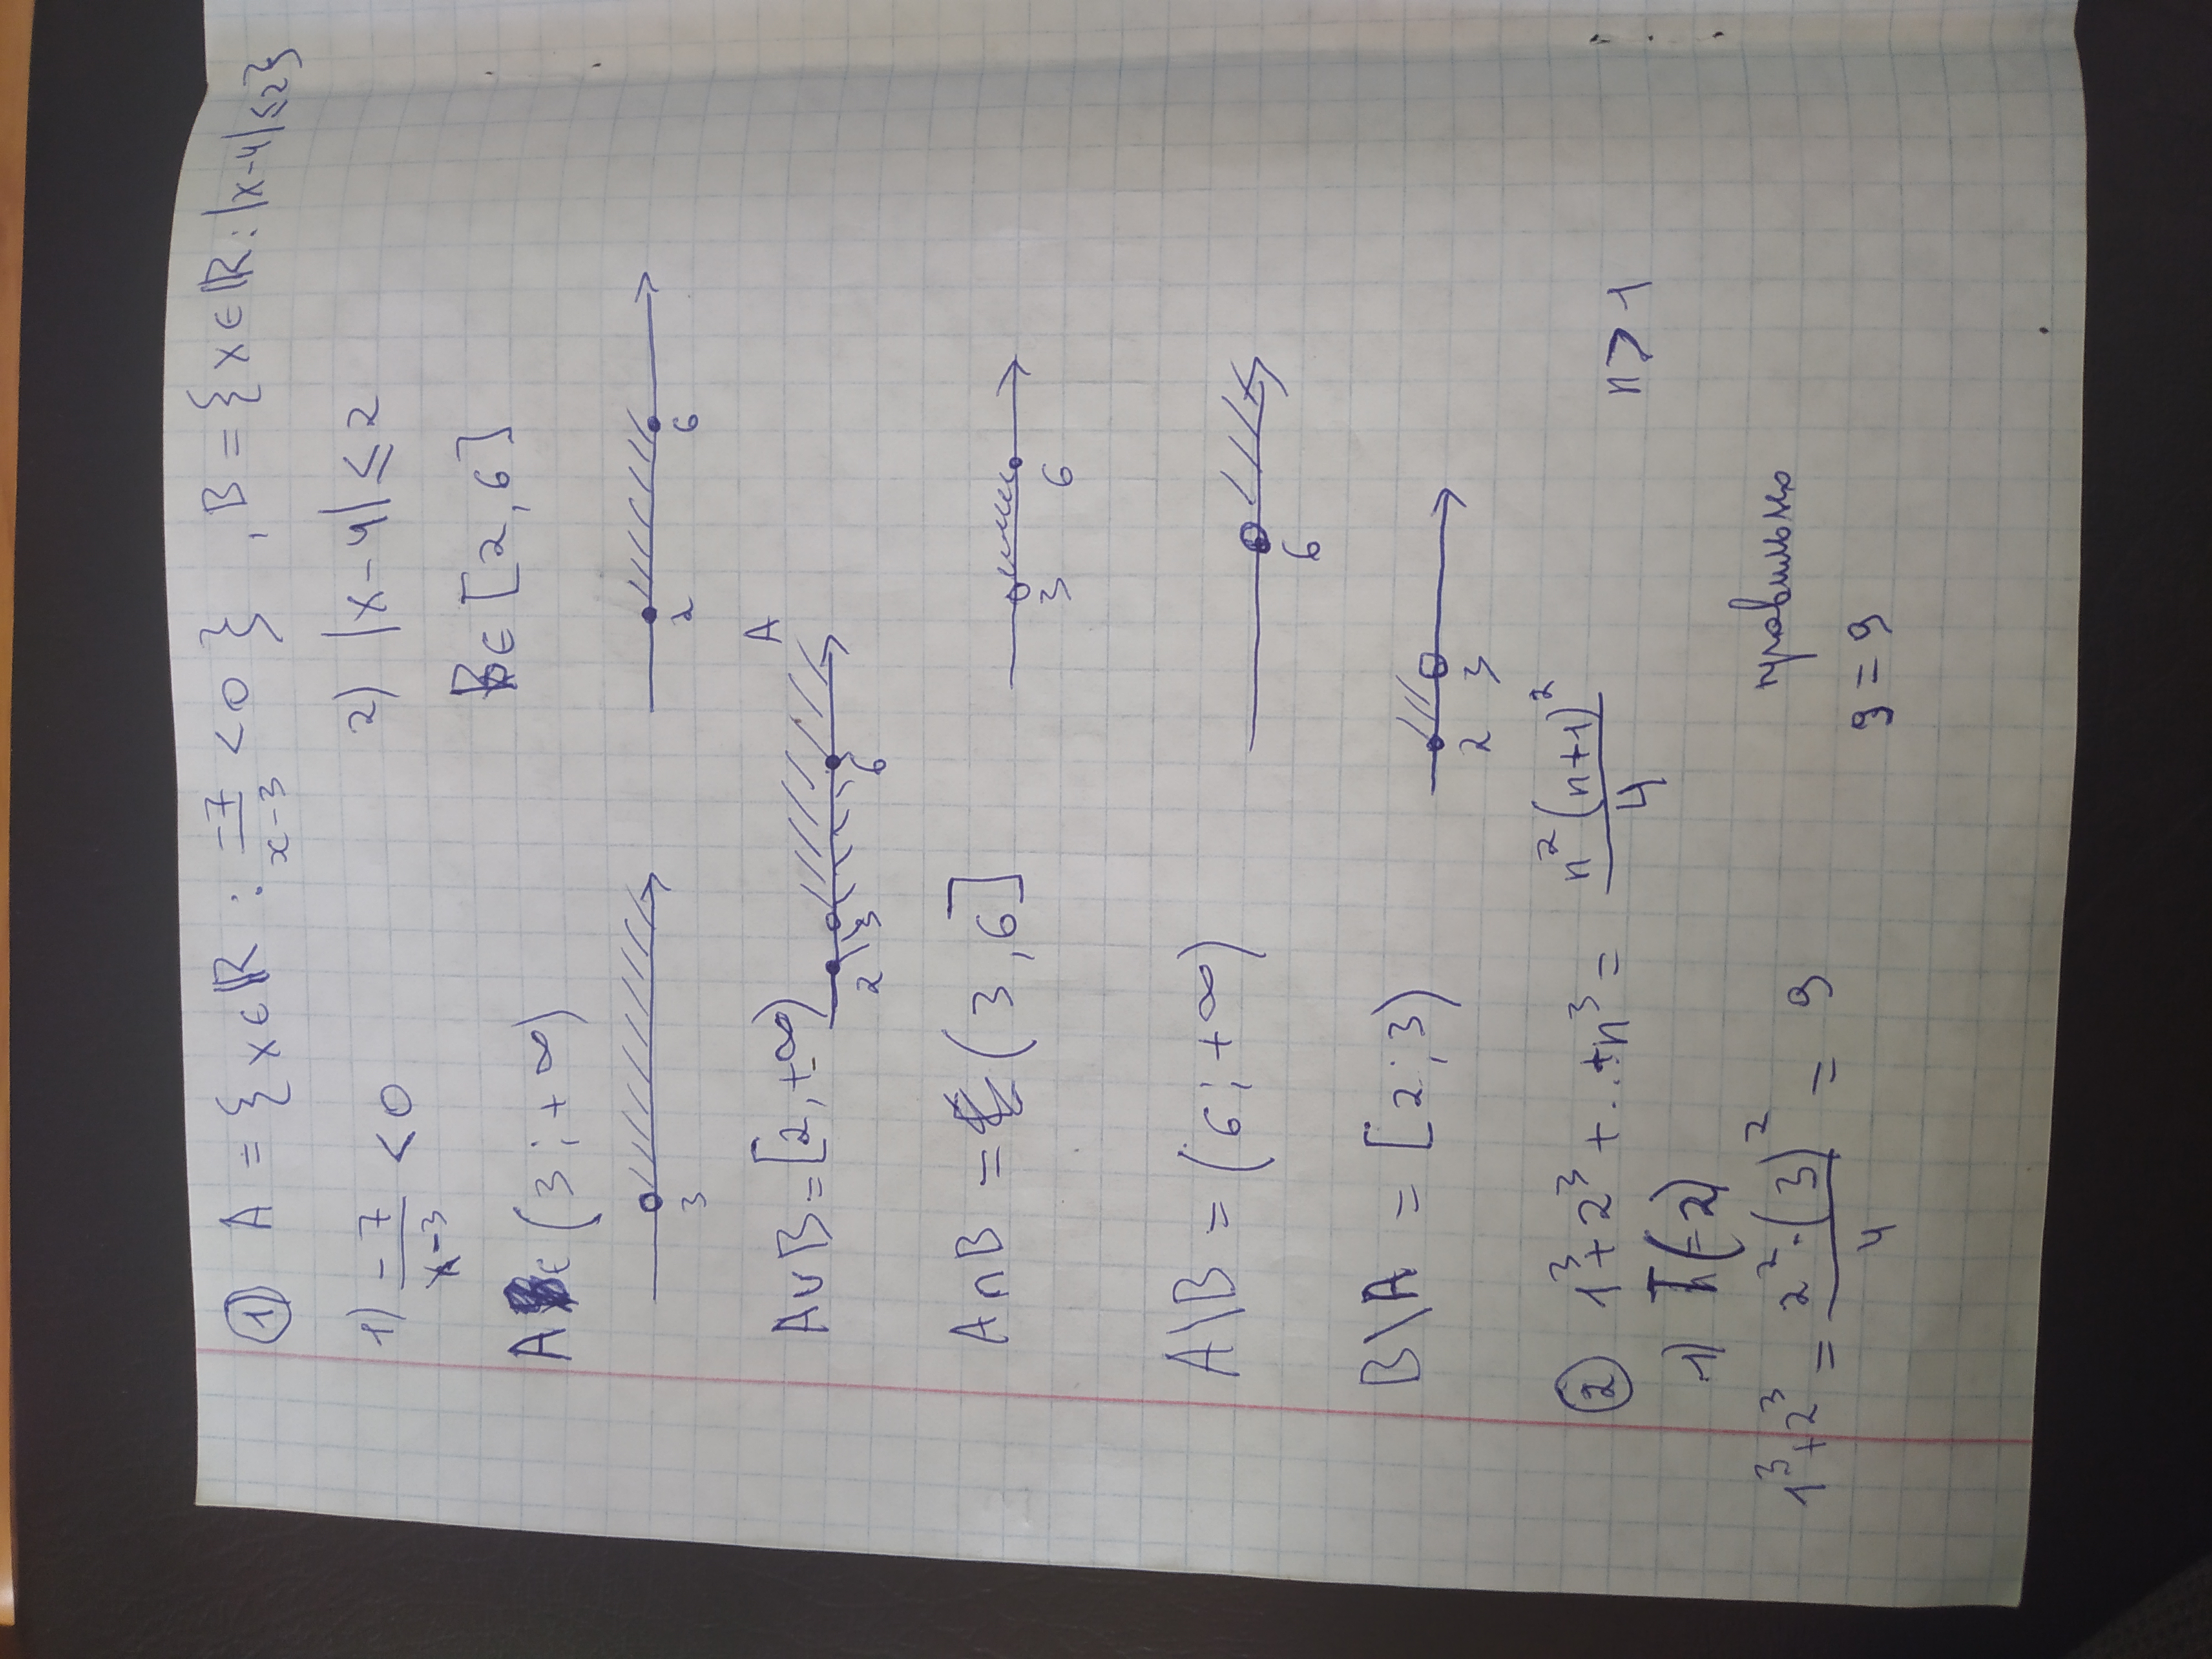 ① A = { x ∈ ℝ : −7/(x−3) < 0 } , B = { x ∈ ℝ : |x−4| ≤ 2 }
1) −7/(x−3) < 0 2) |x−4| ≤ 2
B ∈ [2,6]
A ∈ (3;+∞)
3 2 6
A
A∪B = [2,+∞)
2 3 6
A∩B = (3,6]
3 6
A\B = (6;+∞)
6
B\A = [2;3)
2 3
② 1³+2³+...+n³ = n²(n+1)²/4 n > 1
1) (2)
1³+2³ = 2²·(3)²/4 = 9 правильно
9 = 9